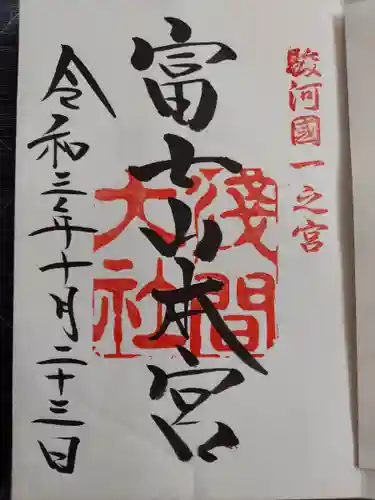 駿河國一之宮
富士山本宮
淺間
大社
令和三年十月二十三日